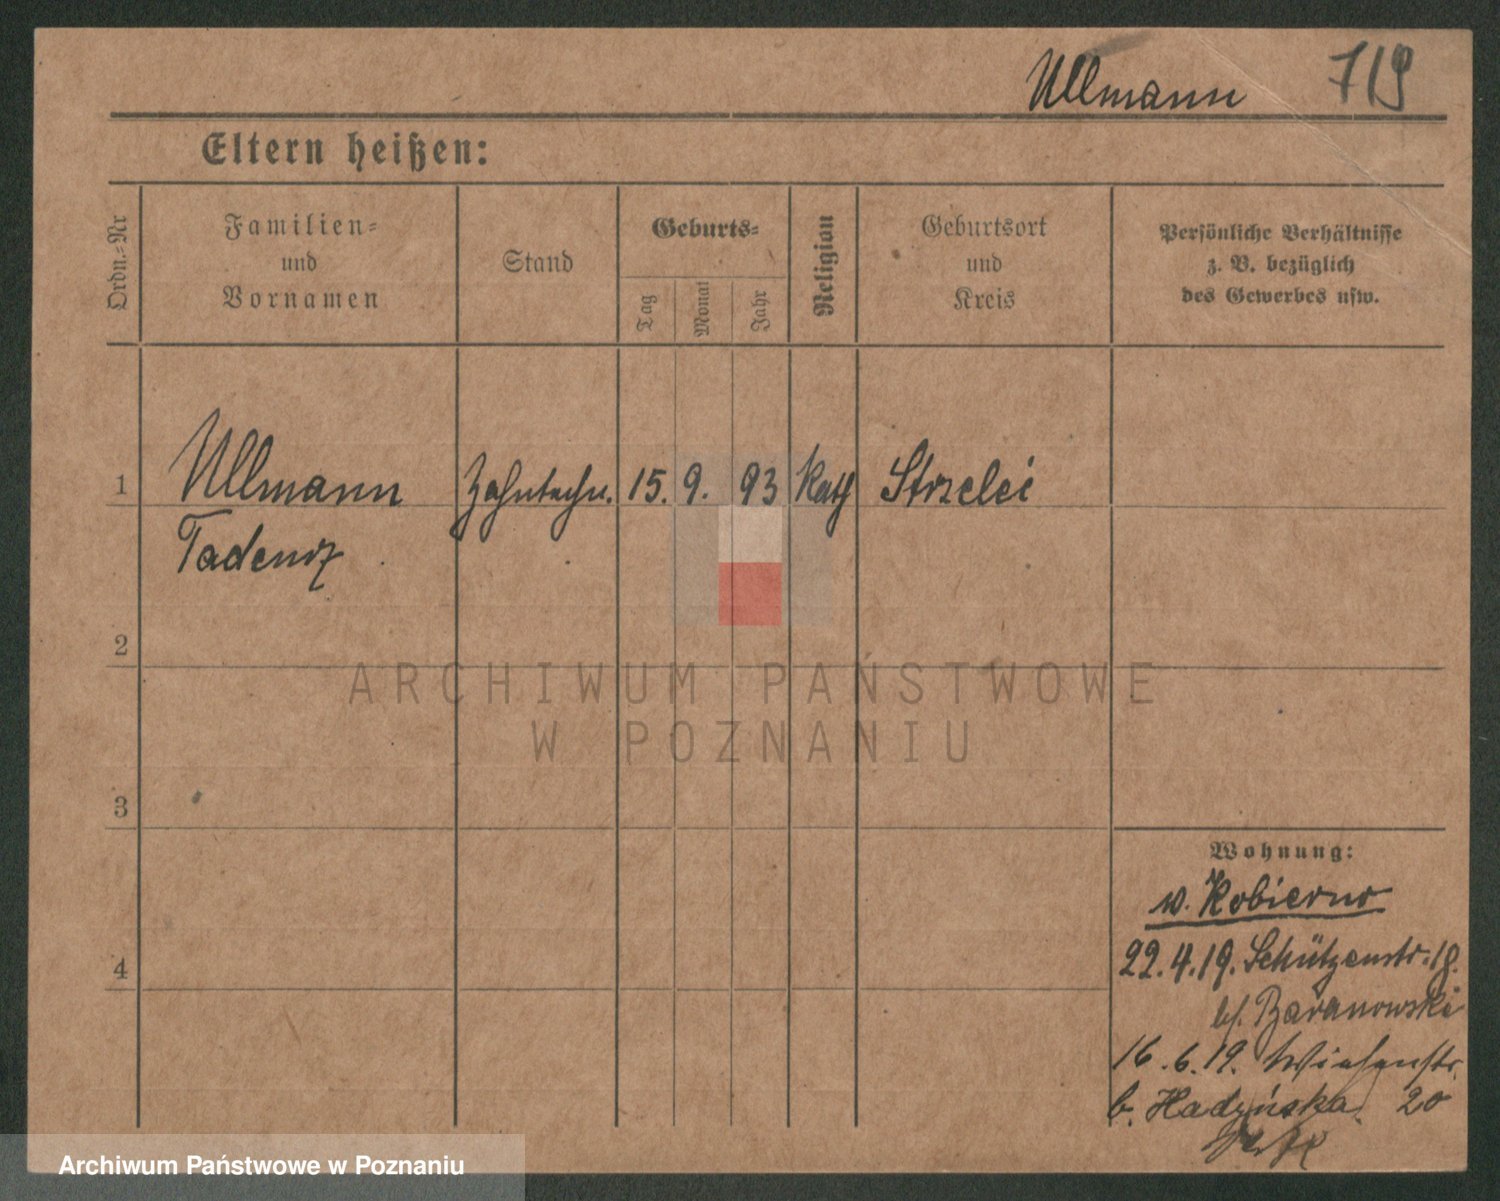 Ullmann 719
Eltern heißen:
Ordn.-Nr
Familien- und Vornamen
Stand
Geburts-
Tag Monat Jahr
Religion
Geburtsort und Kreis
Persönliche Verhältnisse
z. B. bezüglich
des Gewerbes usw.
1 Ullmann Zahntechn. 15. 9. 93 Kath Strzelci
Tadeusz
2
ARCHIWUM PAŃSTWOWE
W POZNANIU
3
Wohnung:
w. Kobierno
4
22.4.19. Schützenstr. 18.
bf. Baranowski
16.6.19. Wiesenstr.
b. Hadyńska 20
Archiwum Państwowe w Poznaniu